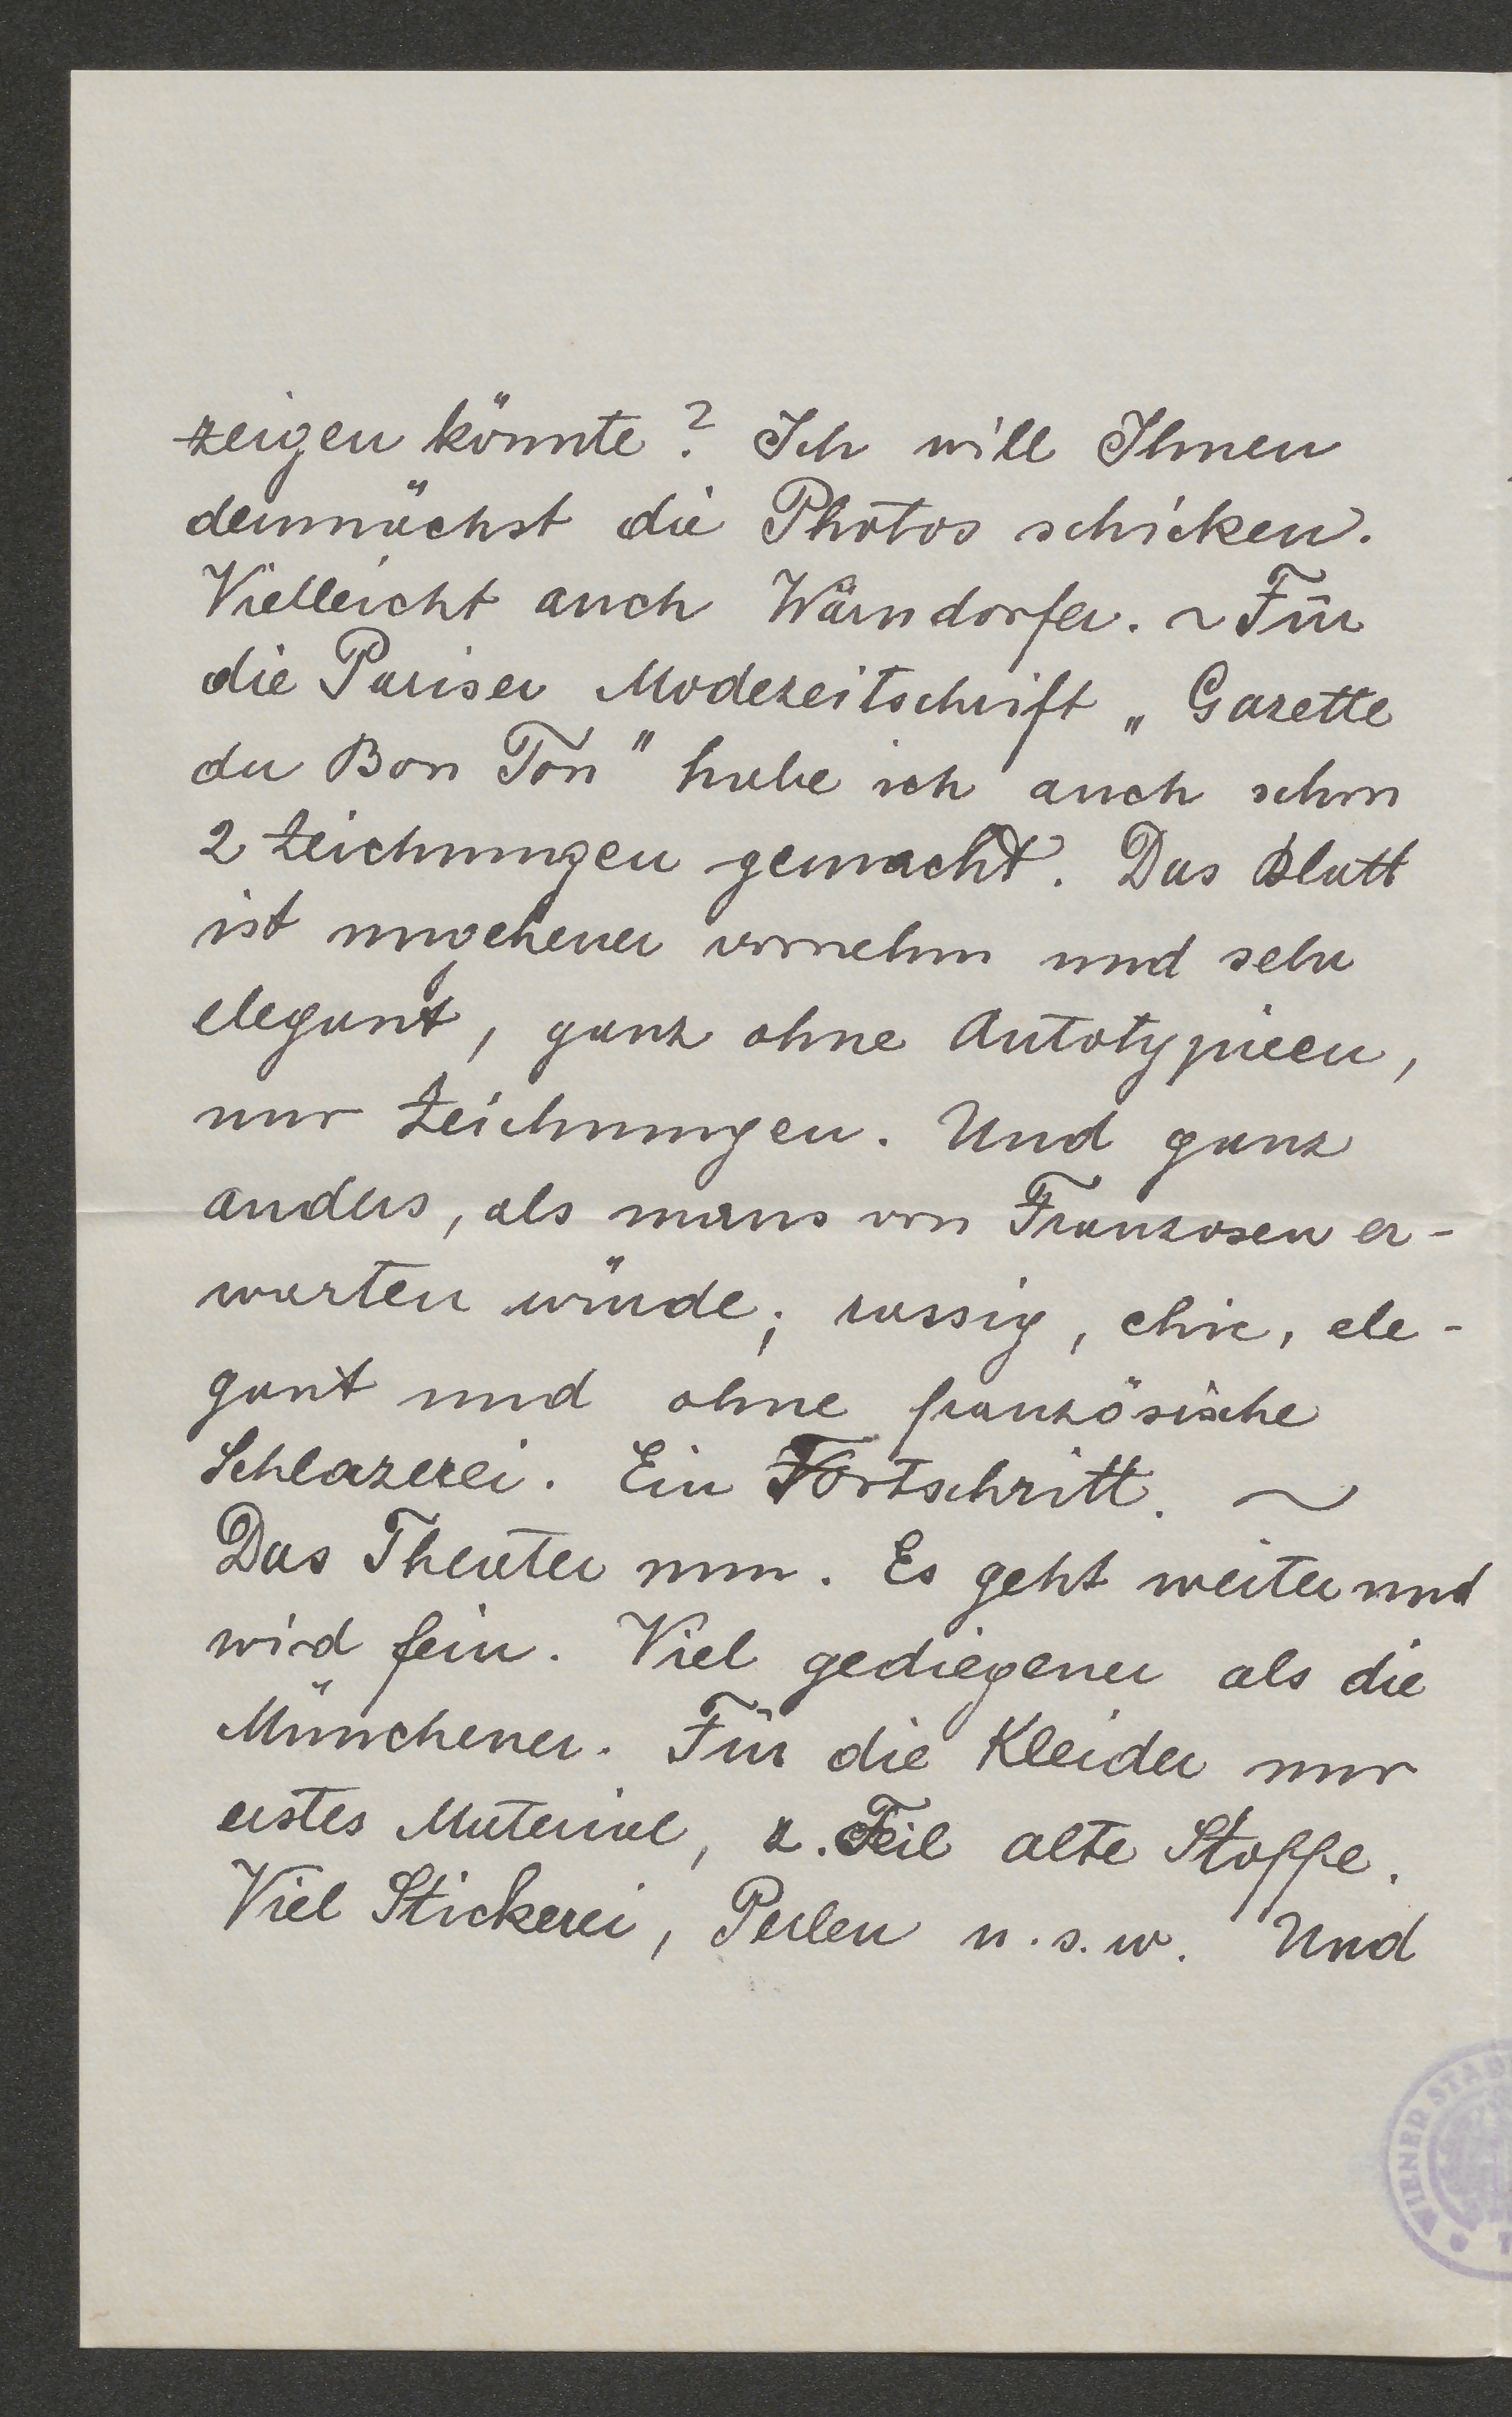 zeigen könnte? Ich will Ihnen
demnächst die Photos schicken.
Vielleicht auch Wärndorfer. ~ Für
die Pariser Modezeitschrift „Gazette
du Bon Ton" habe ich auch schon
2 Zeichnungen gemacht. Das Blatt
ist ungeheuer vornehm und sehr
elegant, ganz ohne Autotypieen,
nur Zeichnungen. Und ganz
anders, als mans von Franzosen er-
warten würde; rassig, chic, ele-
gant und ohne französische
Schlazerei. Ein Fortschritt. ~
Das Theater nun. Es geht weiter und
wird fein. Viel gediegener als die
Münchener. Für die Kleider nur
erstes Material, z. Teil alte Stoffe.
Viel Stickerei, Perlen u.s.w. Und
WIENER STAD